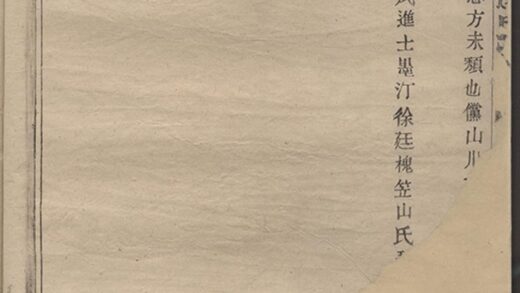 方未類也儻山川
進士墨汀徐廷槐笠山氏